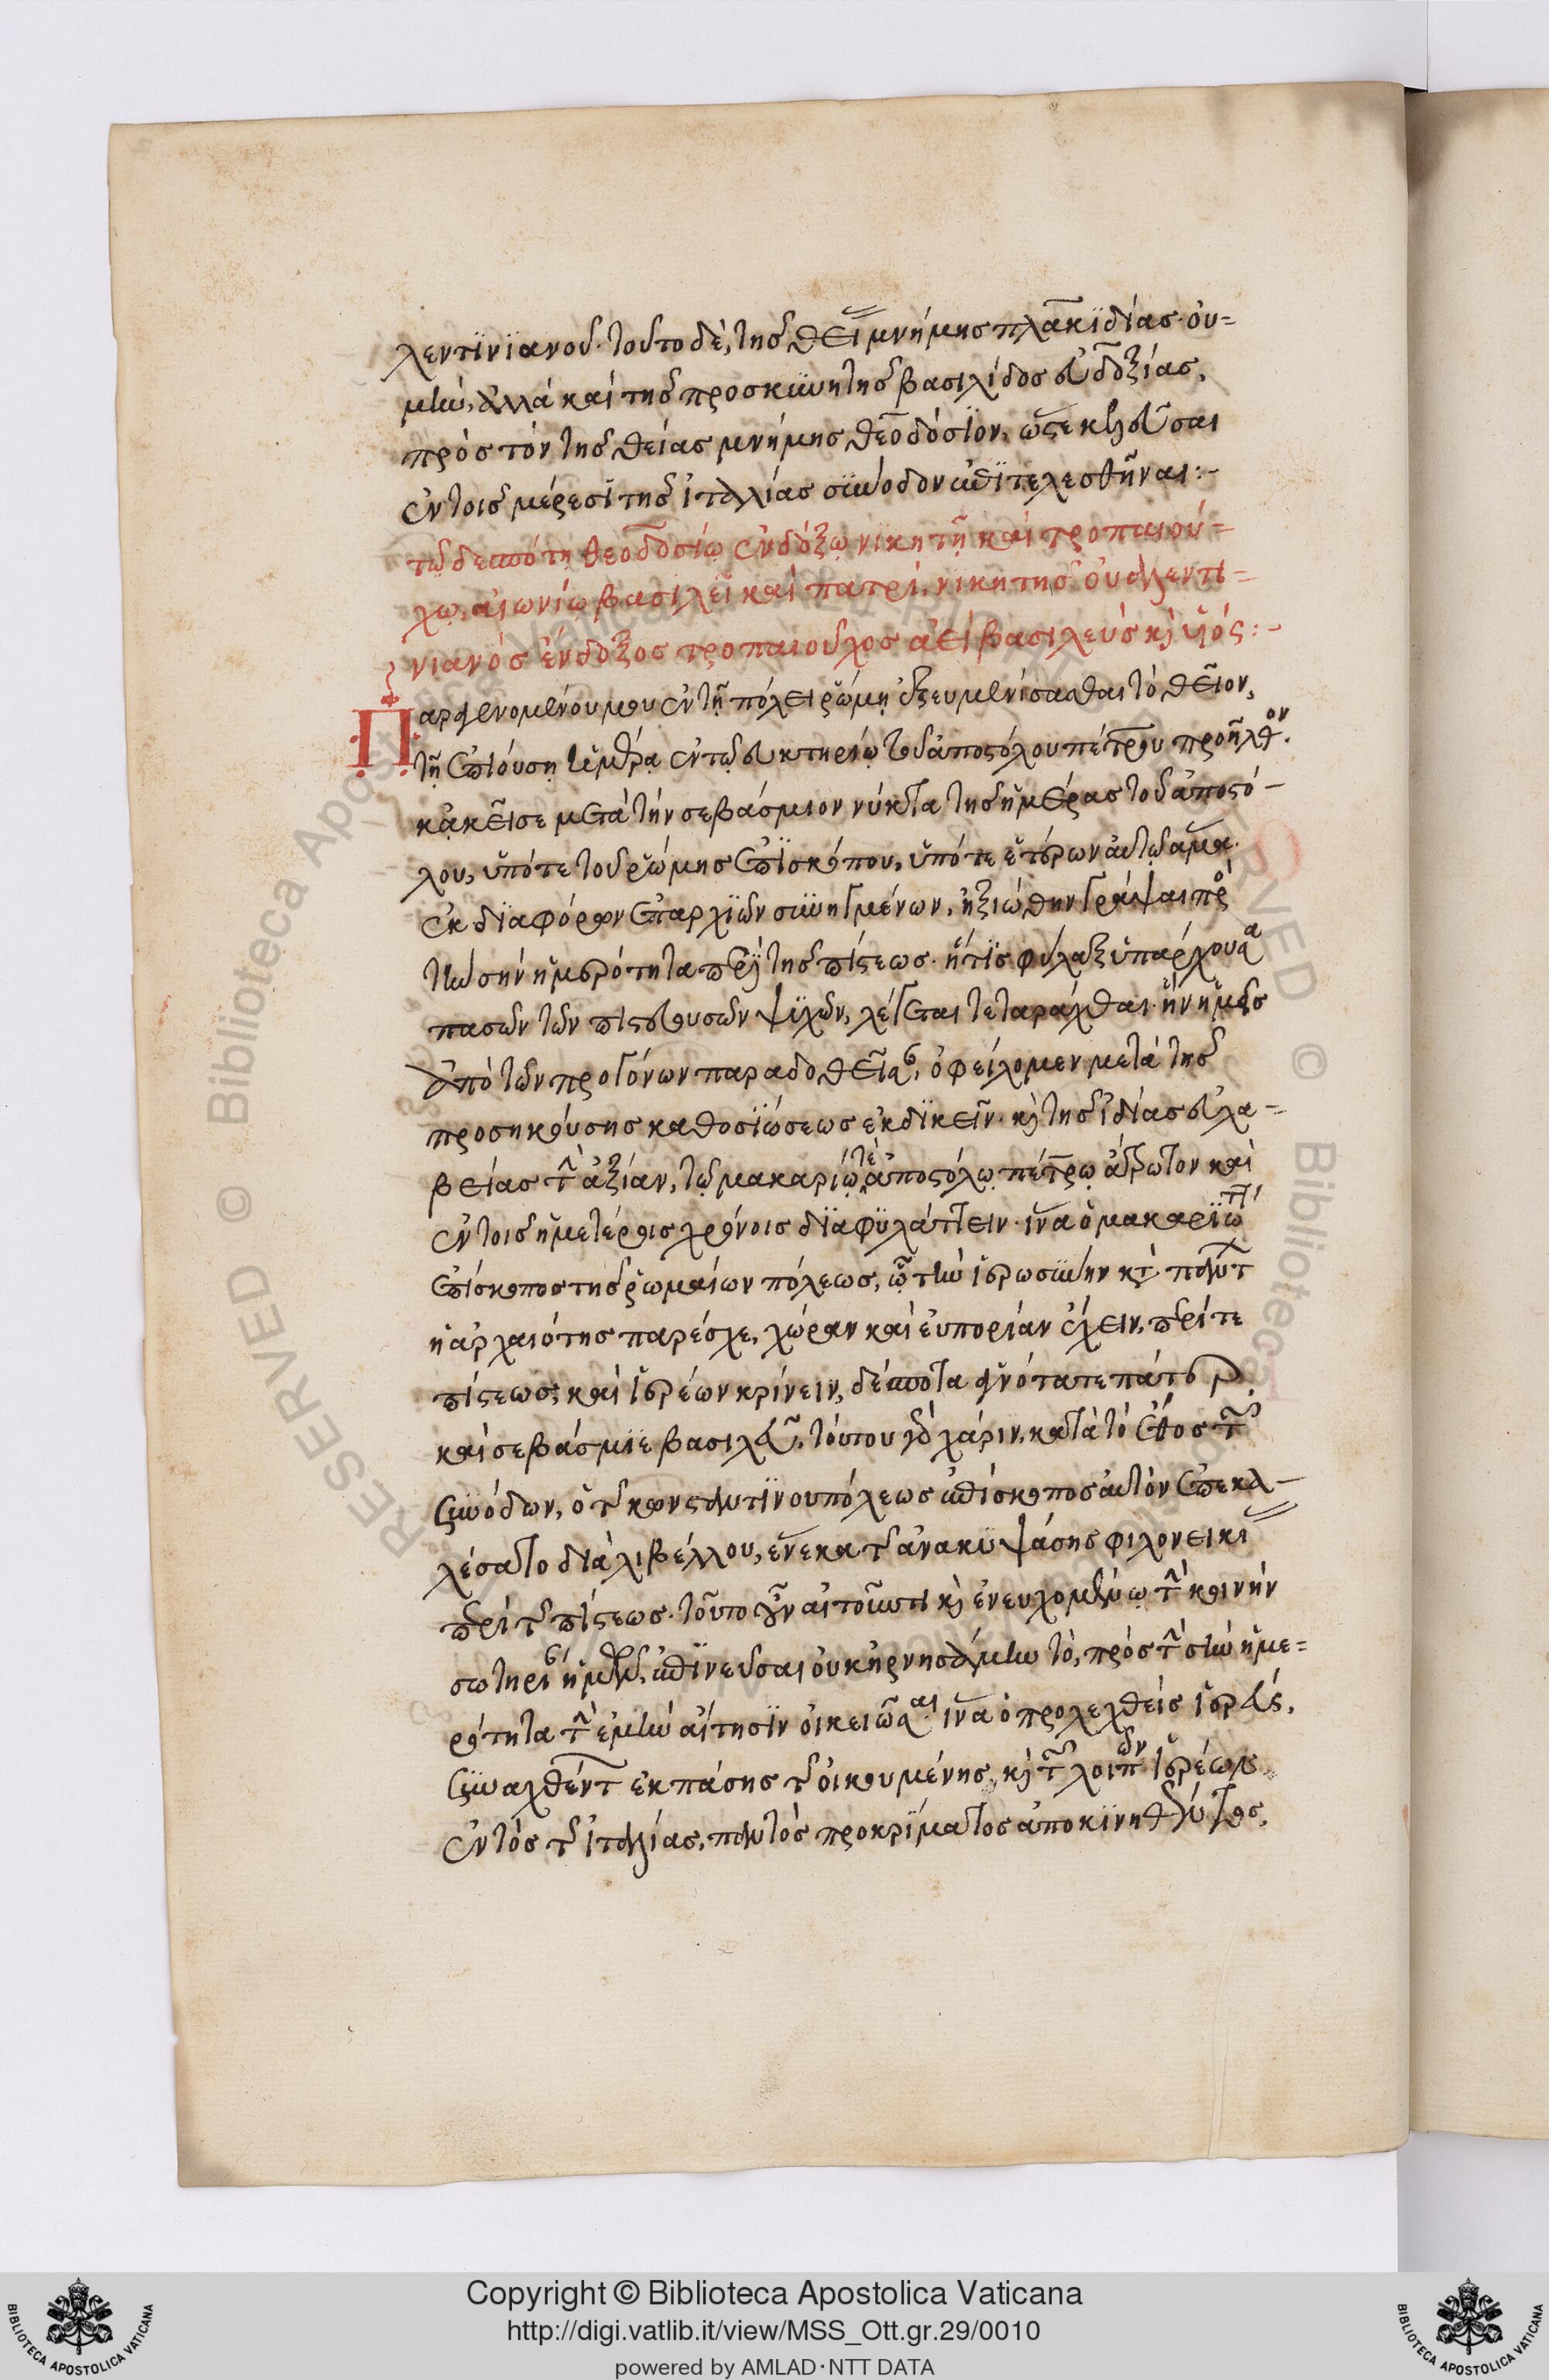 λεντινιανοῦ· τοῦτο δὲ, τῆς θείας μνήμης πλακιδίας· οὐ=
μὴν, ἀλλὰ καὶ τῆς προσκυνητῆς βασιλίδος εὐδοξίας,
πρὸς τὸν τῆς θείας μνήμης θεοδόσϊον, ὥστε κελεῦσαι
ἐν τοῖς μέρεσι τῆς ἰταλίας σύνοδον ἐπιτελεσθῆναι:-
τῷ δεσπότη θεοδοσίῳ ἐνδόξῳ νικητῇ καὶ τροπαιού=
χῳ, αἰωνίῳ βασιλεῖ καὶ πατρὶ, νικητὴς οὐαλεντι=
νιανὸς ἔνδοξος τροπαιοῦχος ἀεὶ βασιλεὺς κὶ ὑιός:-
Παραγενομένου μου ἐν τῇ πόλει ῥώμῃ ἐξευμενίσασθαι τὸ θεῖον,
τῇ ἐπιούσῃ ἡμέρᾳ ἐν τῷ εὐκτηρίῳ τοῦ ἀποστόλου πέτρου προῆλθον.
κἀκεῖσε μετὰ τὴν σεβάσμιον νύκτα τῆς ἡμέρας τοῦ ἀποστό-
λου, ὑπό τε τοῦ ῥώμης ἐπϊσκόπου, ὑπό τε ἑτέρων αὐτῷ ἅμα
ἐκ διαφόρων ἐπαρχϊῶν συνηγμένων, ἠξιώθην γράψαι πρὸς
τὴν σὴν ἡμερότητα περὶ τῆς πίστεως· ἥτϊς φύλαξ ὑπάρχουσα
πασῶν τῶν πιστευουσῶν ψϋχῶν, λέγεται τεταράχθαι· ἣν ἡμεῖς
ἀπὸ τῶν προγόνων παραδοθεῖσαν, ὀφείλομεν μετὰ τῆς
προσηκούσης καθοσϊώσεως ἐκδϊκεῖν· κὶ τῆς ἰδίας εὐλα-
βείας τὴν ἀξίαν, τῷ μακαρίῳ τε ἀποστόλῳ πέτρῳ ἄτρωτον καὶ
ἐν τοῖς ἡμετέροις χρόνοις δϊαφϋλάττειν· ἵνα ὁ μακαριώτατος
ἐπίσκοπος τῆς ῥωμαίων πόλεως, ᾧ τὴν ἱερωσύνην κατὰ πάντων
ἡ ἀρχαιότης παρέσχε, χώραν καὶ εὐπορίαν ἔχειν, περί τε
πίστεως καὶ ἱερέων κρίνειν, δέσποτα γαληνότατε πάτερ
καὶ σεβάσμϊε βασιλεῦ. τούτου γὰρ χάριν, κατὰ τὸ ἔθος τῶν
συνόδων, ὁ τῆς κωνσταντϊνουπόλεως ἐπίσκοπος αὐτὸν ἐπεκα-
λέσατο διὰ λιβέλλου, ἕνεκα τῆς ἀνακυψάσης φιλονεικίας
περὶ τῆς πίστεως· τοῦτο οὖν αἰτοῦντι κὶ ἐνευχομένῳ τὴν κοινὴν
σωτηρίαν ἡμῶν, ἐπϊνεῦσαι οὐκ ἠρνησάμην τὸ, πρὸς τὴν σὴν ἡμε=
ρότητα τὴν ἐμὴν αἴτησϊν οἰκειῶσαι· ἵνα ὁ προλεχθεὶς ἱερεὺς,
συναχθέντων ἐκ πάσης τῆς οἰκουμένης, κὶ τῶν λοιπῶν ἱερέων
ἐντὸς τῆς ἰταλίας, παντὸς προκρίματος ἀποκϊνηθέντος,
Copyright © Biblioteca Apostolica Vaticana
http://digi.vatlib.it/view/MSS_Ott.gr.29/0010
powered by AMLAD·NTT DATA